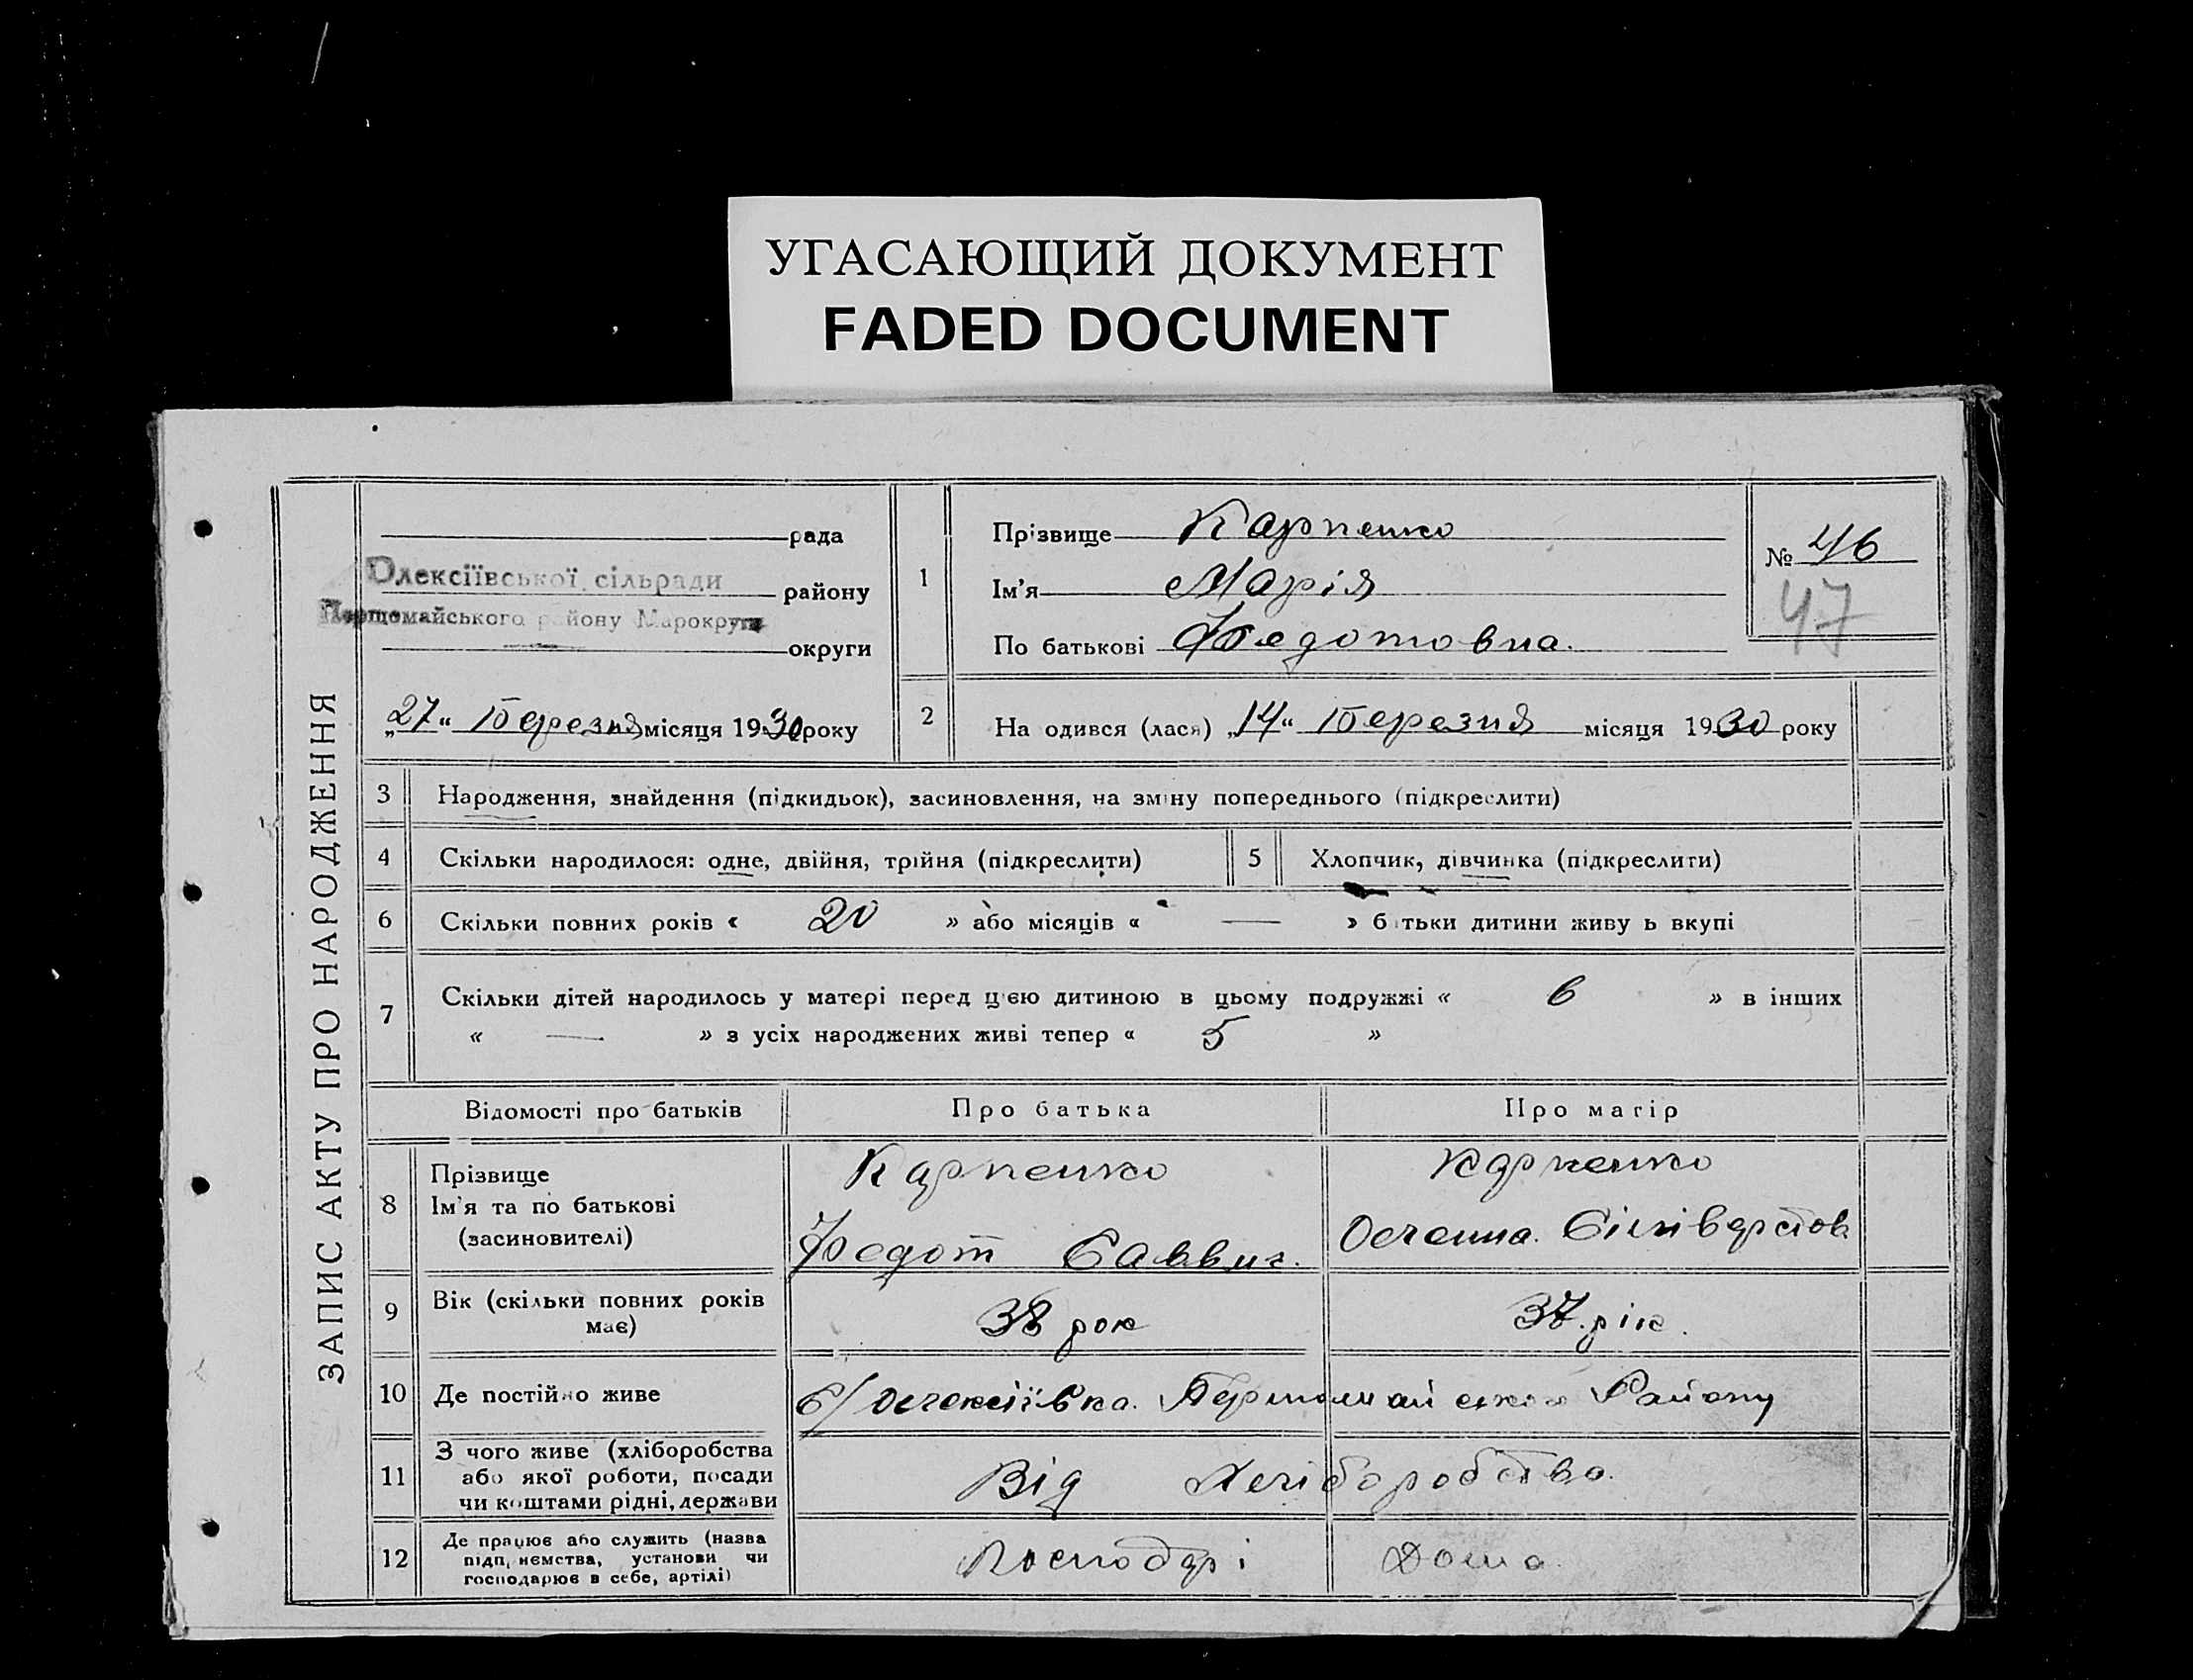 УГАСАЮЩИЙ ДОКУМЕНТ
FADED DOCUMENT
ЗАПИС АКТУ ПРО НАРОДЖЕННЯ
рада
Олексіївської сільради
району
Першомайського району Марокруги
округи
„27“ Березня місяця 1930 року
1
Прізвище Карпенко
Ім'я Марія
По батькові Федотовна.
№ 46
47
2 На одився (лася) „14“ Березня місяця 1930 року
3 Народження, знайдення (підкидьок), засиновлення, на зміну попереднього (підкреслити)
4 Скільки народилося: одне, двійня, трійня (підкреслити)
5 Хлопчик, дівчинка (підкреслити)
6 Скільки повних років « 20 » або місяців « — » б тьки дитини живу ь вкупі
7 Скільки дітей народилось у матері перед цією дитиною в цьому подружжі « 6 » в інших
« — » з усіх народжених живі тепер « 5 »
Відомості про батьків Про батька Про матір
8 Прізвище
Ім'я та по батькові
(засиновителі)
Карпенко
Федот Саввич.
Карпенко
Олена. Сіліверстов
9 Вік (скільки повних років
має)
38 рок
37. рік.
10 Де постійно живе
С/Олексіївка. Першомайського Району
11 З чого живе (хліборобства
або якої роботи, посади
чи коштами рідні, держави
Від Хліборобства.
12 Де працює або служить (назва
підп, иємства, установи чи
господарює в себе, артілі)
Господарі Дома.